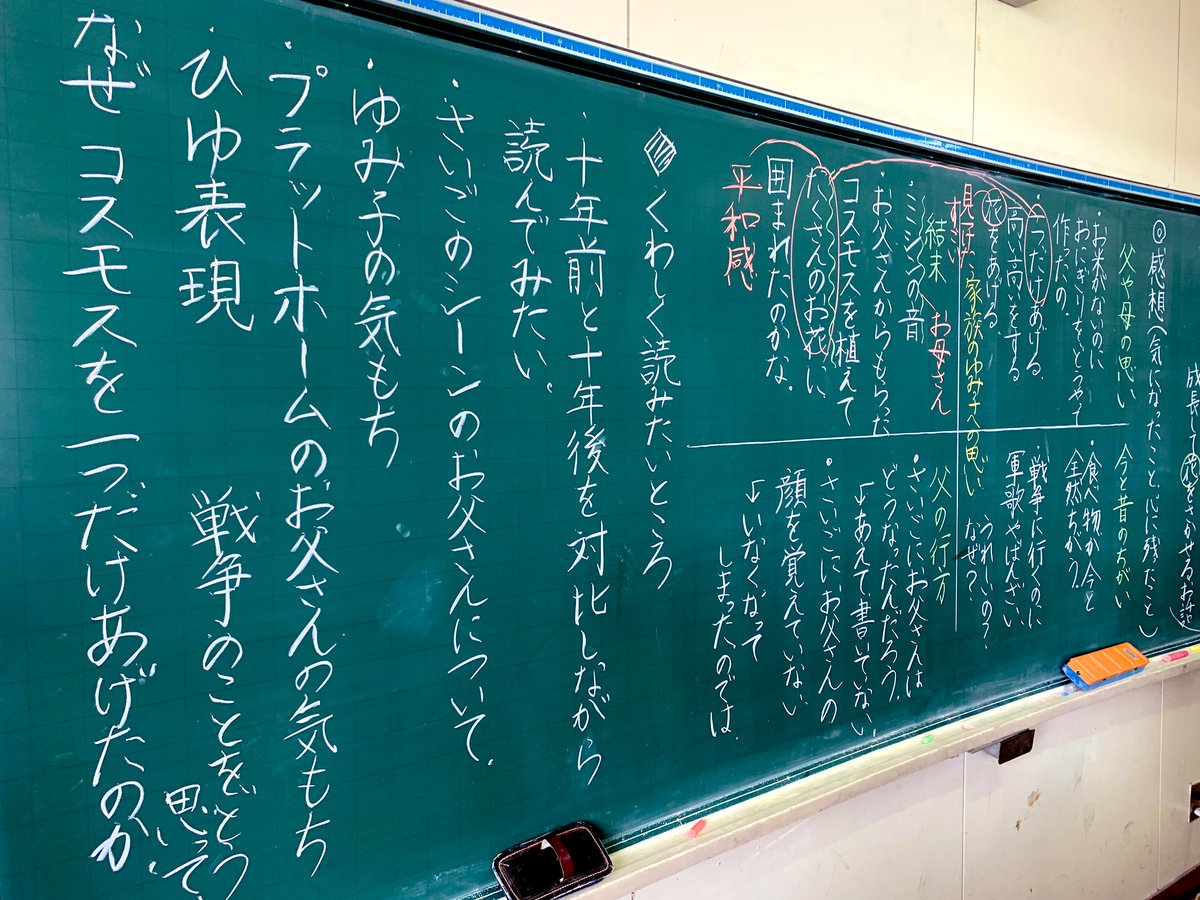 花をさかせるお話
◎感想(気になったこと心に残ったこと)
父や母の思い
・お米がないのに
おにぎりをどうやって
作ったの。
・一つだけあげる。
高い高いをする
花をあげる
家族のゆみ子への思い
結末 お母さん
ミシンの音
・お父さんからもらった
コスモスを植えて
たくさんのお花に
囲まれたのかな。
平和感
今と昔のちがい
・食べ物が今と
全然ちがう。
戦争に行くのに
軍歌やばんざい
うれしいの?
なぜ?
父の行方
さいごにお父さんは
どうなったんだろう。
↓あえて書いてない
・さいごにお父さんの
顔を覚えていない
↓いなくなって
しまったのでは。
くわしく読みたいところ
・十年前と十年後を対比しながら
読んでみたい。
・さいごのシーンのお父さんについて。
・ゆみ子の気もち
・プラットホームのお父さんの気もち
・ひゆ表現 戦争のことをどう
思って
なぜコスモスを一つだけあげたのか